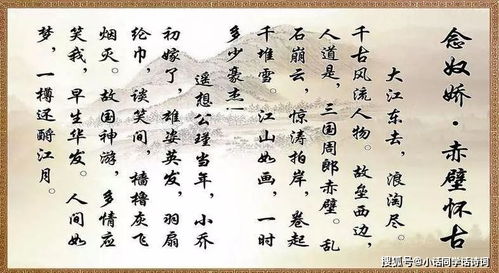 念奴娇·赤壁怀古
大江东去，浪淘尽。
千古风流人物。故垒西边，
人道是，三国周郎赤壁。乱
石崩云，惊涛拍岸，卷起
千堆雪。江山如画，一时
多少豪杰
遥想公瑾当年，小乔
初嫁了，雄姿英发，羽扇
纶巾，谈笑间，樯橹灰飞
烟灭。故国神游，多情应
笑我，早生华发。人间如
梦，一樽还酹江月。
搜狐号@小话同学话诗词